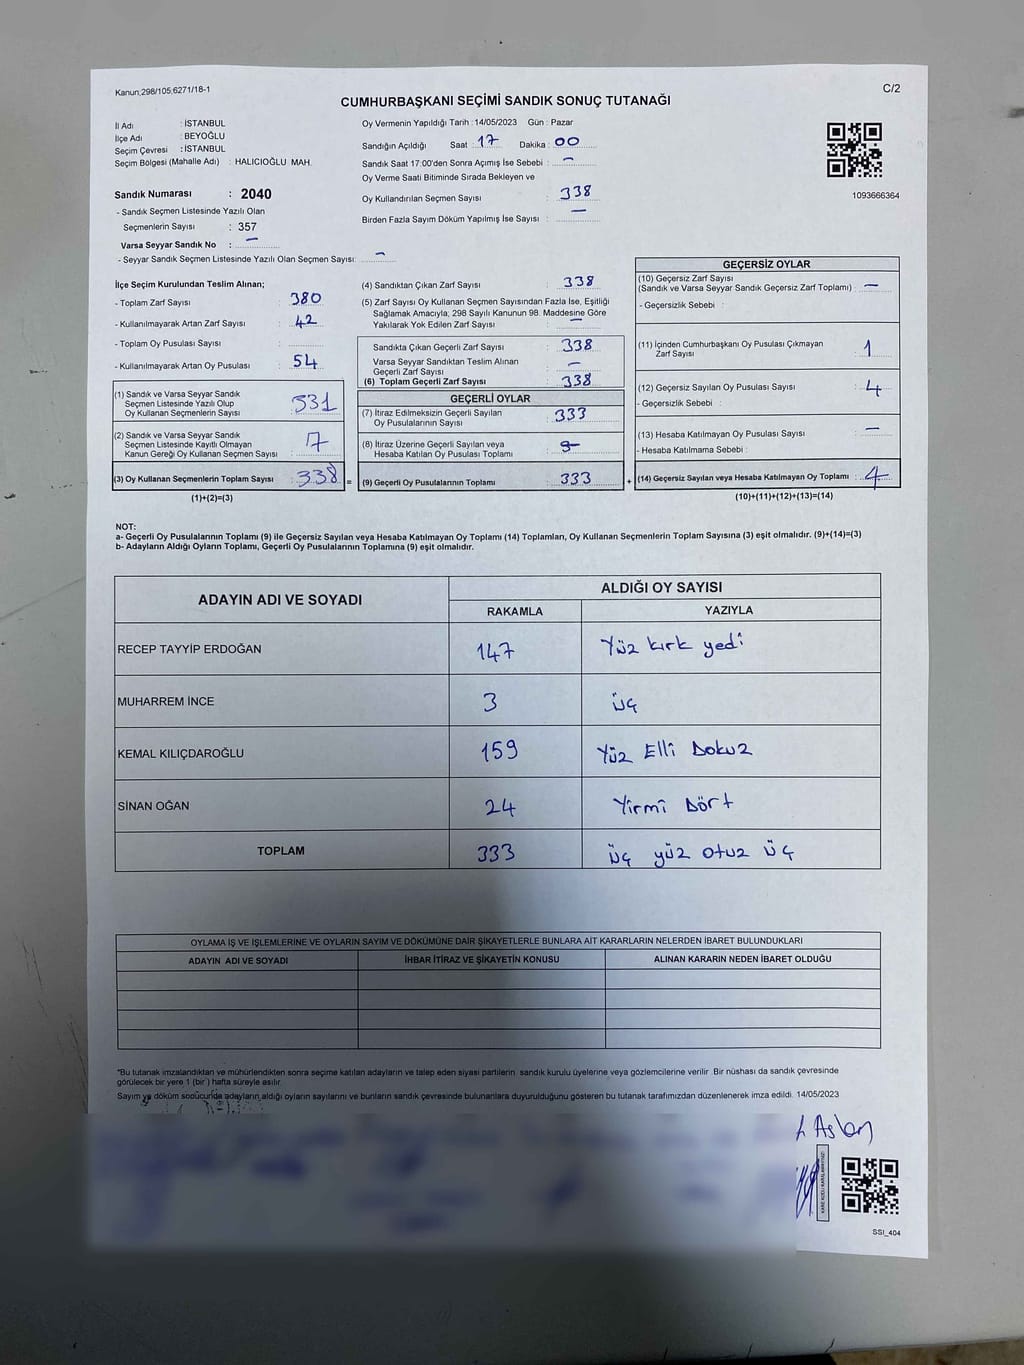 Kanun;298/105;6271/18-1
C/2
CUMHURBAŞKANI SEÇİMİ SANDIK SONUÇ TUTANAĞI
İl Adı : İSTANBUL
İlçe Adı : BEYOĞLU
Seçim Çevresi : İSTANBUL
Seçim Bölgesi (Mahalle Adı) : HALICIOĞLU MAH.
Sandık Numarası : 2040
- Sandık Seçmen Listesinde Yazılı Olan
Seçmenlerin Sayısı : 357
Varsa Seyyar Sandık No : —
- Seyyar Sandık Seçmen Listesinde Yazılı Olan Seçmen Sayısı: —
Oy Vermenin Yapıldığı Tarih : 14/05/2023 Gün : Pazar
Sandığın Açıldığı Saat : 17 Dakika : 00
Sandık Saat 17:00'den Sonra Açımış İse Sebebi : —
Oy Verme Saati Bitiminde Sırada Bekleyen ve
Oy Kullandırılan Seçmen Sayısı : 338
Birden Fazla Sayım Döküm Yapılmış İse Sayısı : —
1093666364
İlçe Seçim Kurulundan Teslim Alınan;
- Toplam Zarf Sayısı : 380
- Kullanılmayarak Artan Zarf Sayısı : 42
- Toplam Oy Pusulası Sayısı :
- Kullanılmayarak Artan Oy Pusulası : 54
(1) Sandık ve Varsa Seyyar Sandık
Seçmen Listesinde Yazılı Olup
Oy Kullanan Seçmenlerin Sayısı : 331
(2) Sandık ve Varsa Seyyar Sandık
Seçmen Listesinde Kayıtlı Olmayan
Kanun Gereği Oy Kullanan Seçmen Sayısı : 7
(3) Oy Kullanan Seçmenlerin Toplam Sayısı : 338 =
(1)+(2)=(3)
(4) Sandıktan Çıkan Zarf Sayısı : 338
(5) Zarf Sayısı Oy Kullanan Seçmen Sayısından Fazla İse, Eşitliği
Sağlamak Amacıyla; 298 Sayılı Kanunun 98. Maddesine Göre
Yakılarak Yok Edilen Zarf Sayısı : —
Sandıkta Çıkan Geçerli Zarf Sayısı : 338
Varsa Seyyar Sandıktan Teslim Alınan
Geçerli Zarf Sayısı : —
(6) Toplam Geçerli Zarf Sayısı : 338
GEÇERLİ OYLAR
(7) İtiraz Edilmeksizin Geçerli Sayılan
Oy Pusulalarının Sayısı : 333
(8) İtiraz Üzerine Geçerli Sayılan veya
Hesaba Katılan Oy Pusulası Toplamı :
(9) Geçerli Oy Pusulalarının Toplamı : 333 +
GEÇERSİZ OYLAR
(10) Geçersiz Zarf Sayısı
(Sandık ve Varsa Seyyar Sandık Geçersiz Zarf Toplamı) : —
- Geçersizlik Sebebi :
(11) İçinden Cumhurbaşkanı Oy Pusulası Çıkmayan
Zarf Sayısı : 1
(12) Geçersiz Sayılan Oy Pusulası Sayısı : 4
- Geçersizlik Sebebi :
(13) Hesaba Katılmayan Oy Pusulası Sayısı : —
- Hesaba Katılmama Sebebi :
(14) Geçersiz Sayılan veya Hesaba Katılmayan Oy Toplamı : 4
(10)+(11)+(12)+(13)=(14)
NOT:
a- Geçerli Oy Pusulalarının Toplamı (9) ile Geçersiz Sayılan veya Hesaba Katılmayan Oy Toplamı (14) Toplamları, Oy Kullanan Seçmenlerin Toplam Sayısına (3) eşit olmalıdır. (9)+(14)=(3)
b- Adayların Aldığı Oyların Toplamı, Geçerli Oy Pusulalarının Toplamına (9) eşit olmalıdır.
ADAYIN ADI VE SOYADI ALDIĞI OY SAYISI
RAKAMLA YAZIYLA
RECEP TAYYİP ERDOĞAN 147 Yüz kırk yedi
MUHARREM İNCE 3 üç
KEMAL KILIÇDAROĞLU 159 Yüz Elli Dokuz
SİNAN OĞAN 24 Yirmi Dört
TOPLAM 333 üç yüz otuz üç
OYLAMA İŞ VE İŞLEMLERİNE VE OYLARIN SAYIM VE DÖKÜMÜNE DAİR ŞİKAYETLERLE BUNLARA AİT KARARLARIN NELERDEN İBARET BULUNDUKLARI
ADAYIN ADI VE SOYADI İHBAR İTİRAZ VE ŞİKAYETİN KONUSU ALINAN KARARIN NEDEN İBARET OLDUĞU
*Bu tutanak imzalandıktan ve mühürlendikten sonra seçime katılan adayların ve talep eden siyasi partilerin sandık kurulu üyelerine veya gözlemcilerine verilir. Bir nüshası da sandık çevresinde
görülecek bir yere 1 (bir ) hafta süreyle asılır.
Sayım ve döküm sonucunda adayların aldığı oyların sayılarını ve bunların sandık çevresinde bulunanlara duyurulduğunu gösteren bu tutanak tarafımızdan düzenlenerek imza edildi. 14/05/2023
Aslan
SSI_404